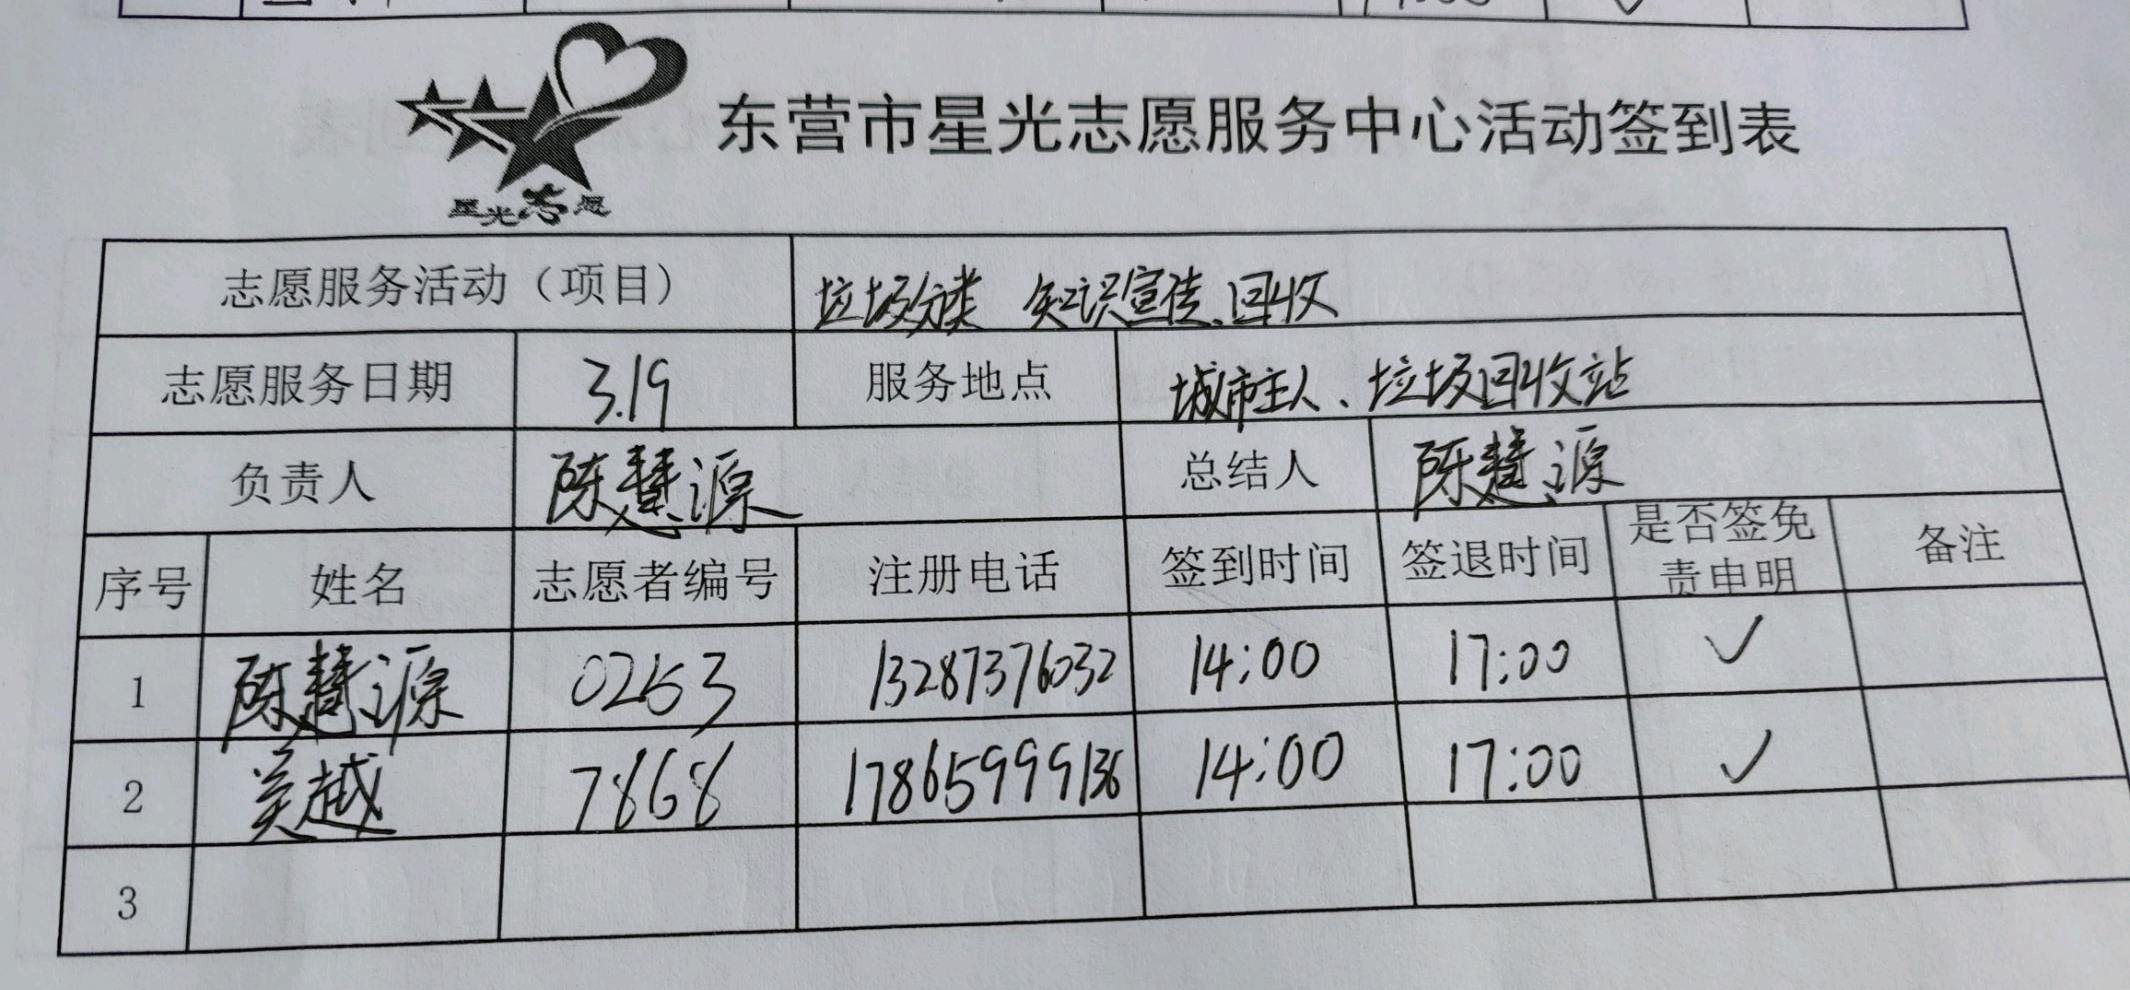 东营市星光志愿服务中心活动签到表
星光志愿
志愿服务活动（项目） 垃圾分类 知识宣传、回收
志愿服务日期 3.19 服务地点 城市主人、垃圾回收站
负责人 陈慧源 总结人 陈慧源
序号 姓名 志愿者编号 注册电话 签到时间 签退时间 是否签免责申明 备注
1 陈慧源 0253 13287376032 14:00 17:00 ✓
2 吴越 7868 17865999136 14:00 17:00 ✓
3